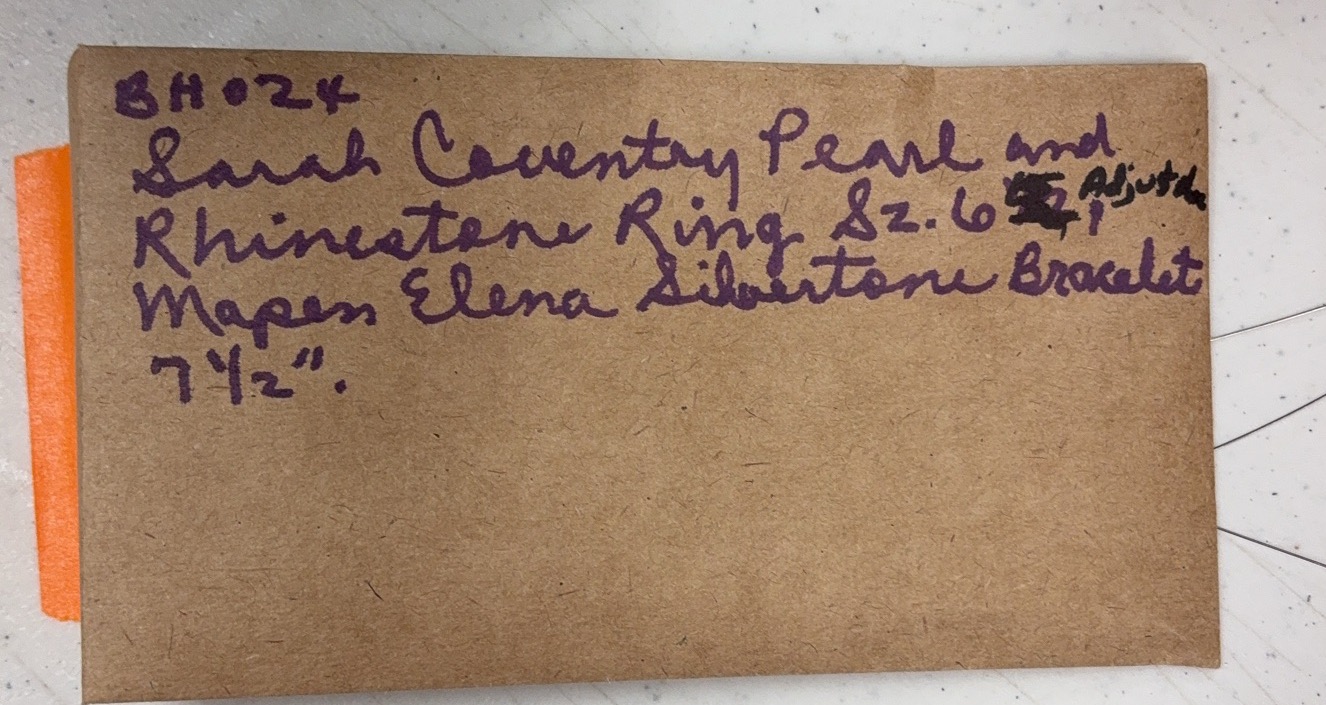 BH024
Sarah Coventry Pearl and
Rhinestone Ring Sz. 6 Adjustable
Mapen Elena Silvertone Bracelet
7 1/2".